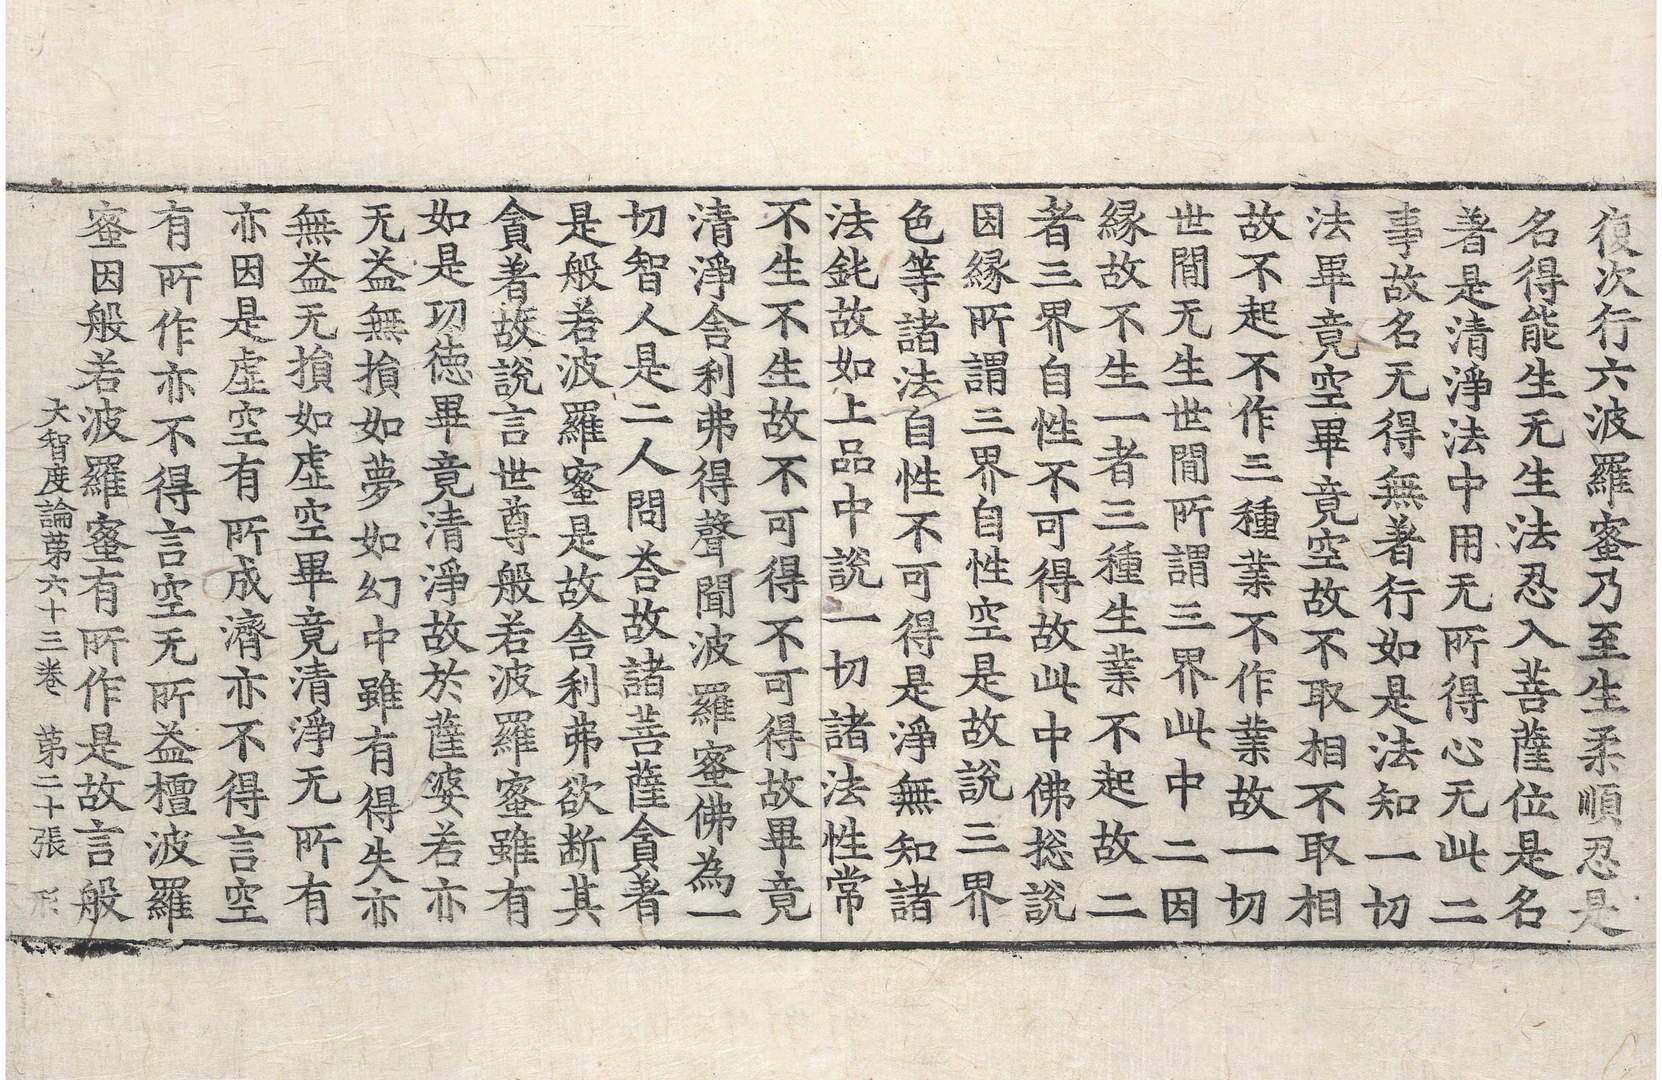 復次行六波羅蜜乃至生柔順忍是
名得能生无生法忍入菩薩位是名
著是清淨法中用无所得心无此二
事故名无得無著行如是法知一切
法畢竟空畢竟空故不取相不取相
故不起不作三種業不作業故一切
世閒无生世閒所謂三界此中二因
縁故不生一者三種生業不起故二
者三界自性不可得故此中佛捴說
因縁所謂三界自性空是故說三界
色等諸法自性不可得是淨無知諸
法鈍故如上品中說一切諸法性常
不生不生故不可得不可得故畢竟
清淨舍利弗得聲聞波羅蜜佛為一
切智人是二人問荅故諸菩薩貪著
是般若波羅蜜是故舍利弗欲断其
貪著故說言世尊般若波羅蜜雖有
如是功德畢竟清淨故於薩婆若亦
无益無損如夢如幻中雖有得失亦
無益无損如虛空畢竟清淨无所有
亦因是虛空有所成濟亦不得言空
有所作亦不得言空无所益檀波羅
蜜因般若波羅蜜有所作是故言般
大智度論第六十三卷 第二十張 形